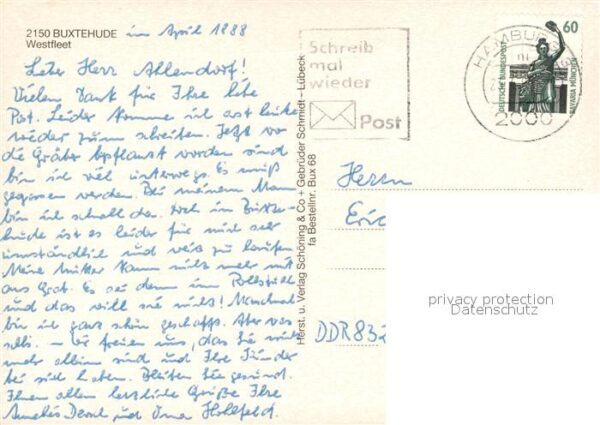 2150 BUXTEHUDE im April 1988
Westfleet
Lieber Herr Allendorf!
Vielen Dank für Ihre liebe
Post. Leider komme ich erst heute
wieder zum schreiben. Jetzt wo
die Gräber bepflanzt worden sind
bin ich viel unterwegs. Es muß
gegossen werden. Bei meinem Mann
bin ich schnell da. Doch in Buxte-
hude ist es leider für mich sehr
umständlich und weit zu laufen
Meine Mutter kann nicht mehr mit
ans Grab. Es sei denn im Rollstuhl
und das will sie nicht! Manchmal
bin ich ganz schön geschafft. Aber was
solls. - Wir freuen uns, das Sie nicht
mehr allein sind und Ihre Kinder
bei sich haben. Bleiben Sie gesund.
Ihnen allen herzliche Grüße Ihre
und Hohlfeld.
Herst. u. Verlag Schöning & Co + Gebrüder Schmidt - Lübeck
fa Bestellnr. Bux 68
Schreib
mal
wieder
Post
HAMBURG
2000
60
DEUTSCHE BUNDESPOST
BAVARIA MÜNCHEN
Herrn
Eric
DDR 832
privacy protection
Datenschutz